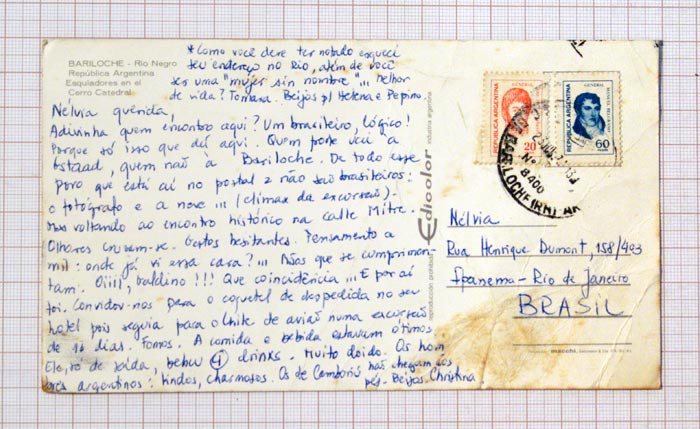 BARILOCHE - Río Negro
República Argentina
Esquiadores en el
Cerro Catedral
*Como você deve ter notado esqueci
seu endereço no Rio, além de você
ser uma "mujer sin nombre"... Melhor
de vida? Tomara. Beijos p/ Helena e Pepino.
Nélvia querida,
Adivinha quem encontro aqui? Um brasileiro, lógico!
Porque só isso que dá aqui. Quem pode vai a
Gstaad, quem não à Bariloche. De todo esse
povo que está aí no postal 2 não são brasileiros:
o fotógrafo e a neve... (climax da excursão).
Mas voltando ao encontro histórico na calle Mitre.
Olhares cruzam-se. Gestos hesitantes. Pensamento a
mil: onde já vi essa cara?... Mãos que se cumprimen-
tam. Oiiii, Valdino!!! Que coincidência... E por aí
foi. Convidou-nos para o coquetel de despedida no seu
hotel pois seguia para o Chile de avião numa excursão
de 16 dias. Fomos. A comida e bebida estavam ótimos.
Ele, só de saída, bebeu 4 drinks. Muito doido. Os hom
bres argentinos: lindos, charmosos. Os de Camboriú não chegam aos
pés. Beijos. Christina
Edicolor
industria argentina
reproducción prohibida
REPUBLICA ARGENTINA
GENERAL
20
REPUBLICA ARGENTINA
GENERAL
MANUEL BELGRANO
60
PESOS
BARILOCHE (RN) AR
Nº
8400
Nélvia
Rua Henrique Dumont, 158/403
Ipanema - Rio de Janeiro
BRASIL